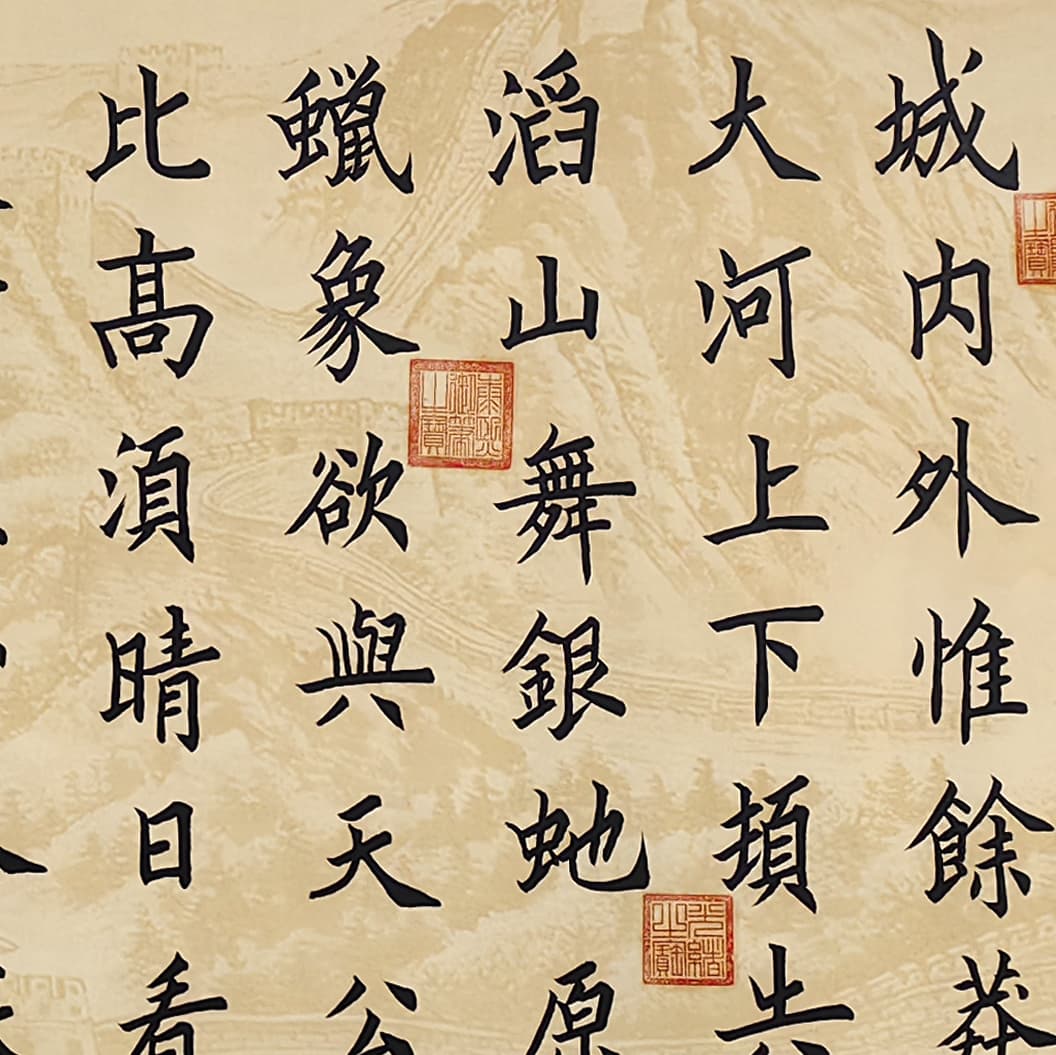 城内外惟餘莽
大河上下頓失
滔山舞銀虵原
蠟象欲與天公
比髙湏晴日看